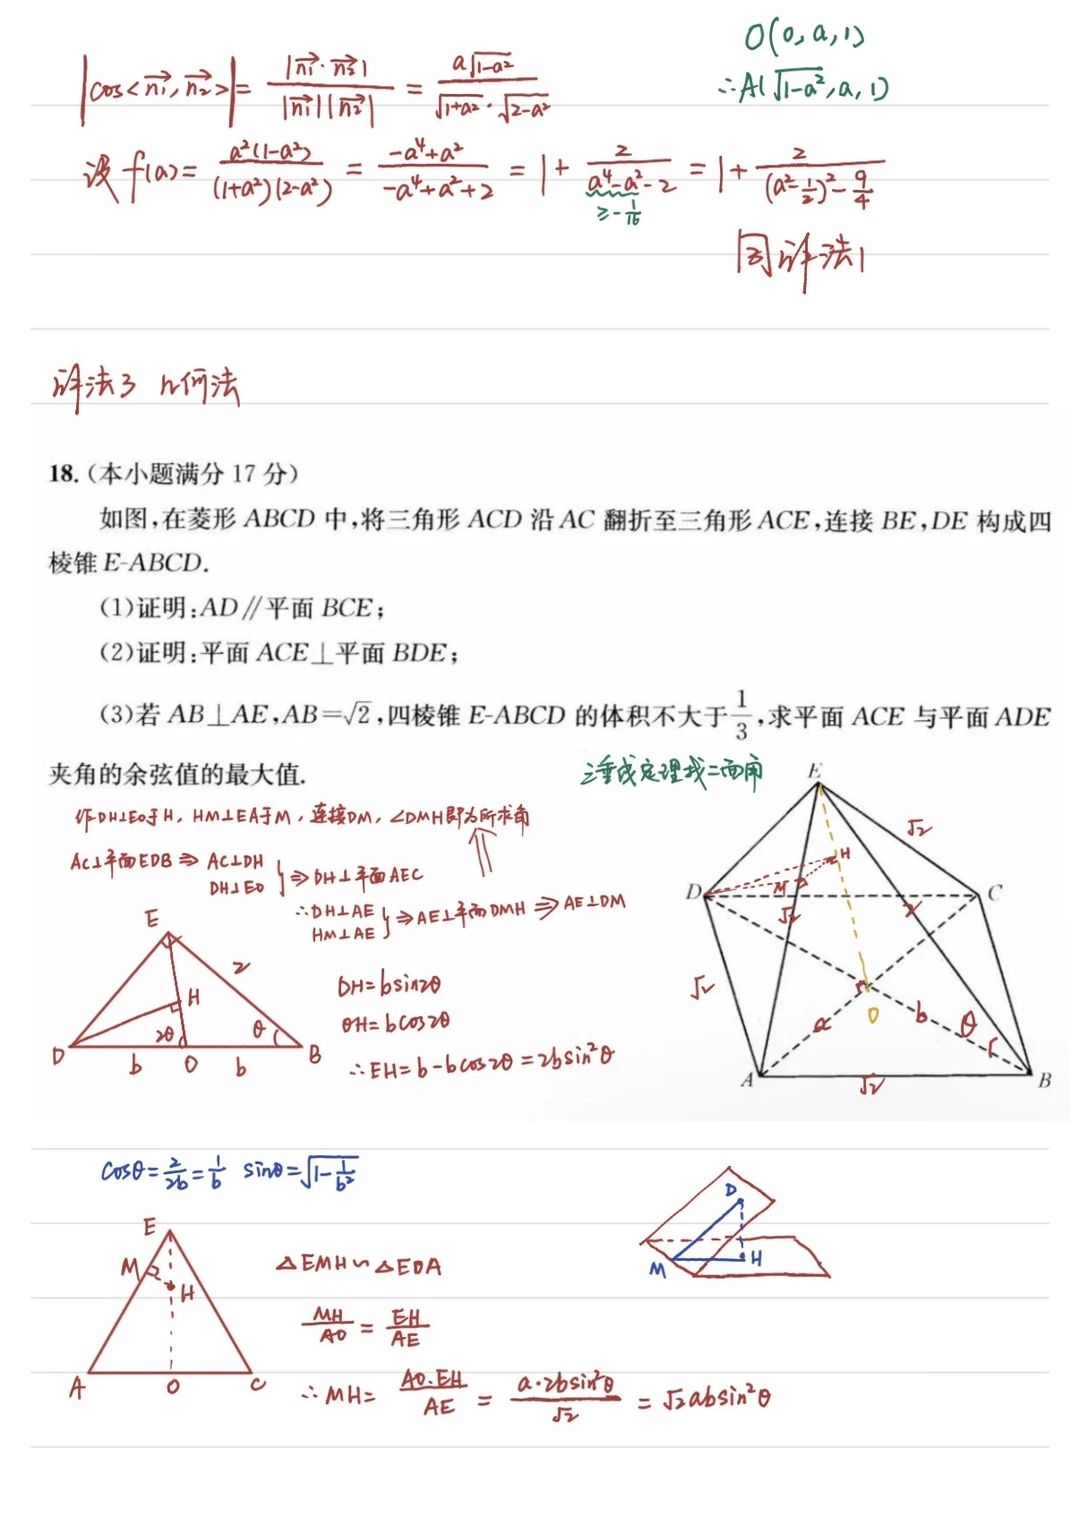 O(0,a,1)
|cos<n₁→,n₂→>|= |n₁→·n₂→| / |n₁→||n₂→| = a√(1-a²) / √(1+a²)·√(2-a²)
∴A(√(1-a²),a,1)
设 f(a)= a²(1-a²) / (1+a²)(2-a²) = -a⁴+a² / -a⁴+a²+2 = 1+ 2 / a⁴-a²-2 = 1+ 2 / (a²-1/2)²-9/4
≥-1/16
同解法1
解法3 几何法
18.(本小题满分 17 分)
如图,在菱形 ABCD 中,将三角形 ACD 沿 AC 翻折至三角形 ACE,连接 BE,DE 构成四
棱锥 E-ABCD.
(1)证明:AD∥平面 BCE;
(2)证明:平面 ACE⊥平面 BDE;
(3)若 AB⊥AE,AB=√2,四棱锥 E-ABCD 的体积不大于1/3,求平面 ACE 与平面 ADE
夹角的余弦值的最大值.
三垂线定理找二面角
作DH⊥EO于H, HM⊥EA于M, 连接DM, ∠DMH即为所求角
AC⊥平面EDB ⇒ AC⊥DH
DH⊥EO } ⇒ DH⊥平面AEC
∴DH⊥AE
HM⊥AE } ⇒ AE⊥平面DMH ⇒ AE⊥DM
E
2
H
2θ
θ
D
b
O
b
B
DH=bsin2θ
OH=bcos2θ
∴EH=b-bcos2θ=2bsin²θ
E
√2
H
D
M
C
√2
2
√2
O
a
b
θ
A
√2
B
cosθ=2/2b=1/b sinθ=√(1-1/b²)
E
M
H
A
O
C
△EMH∽△EOA
MH/AO = EH/AE
∴MH= AO·EH / AE = a·2bsin²θ / √2 = √2absin²θ
D
M
H